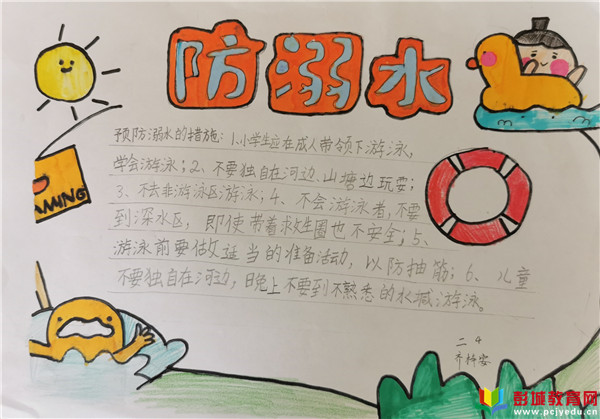 防溺水
预防溺水的措施：1、小学生应在成人带领下游泳，
学会游泳；2、不要独自在河边、山塘边玩耍；
3、不去非游泳区游泳；4、不会游泳者，不要
到深水区，即使带着救生圈也不安全；5、
游泳前要做适当的准备活动，以防抽筋；6、儿童
不要独自在河边，晚上不要到不熟悉的水域游泳。
AMING
二4
彭城教育网
www.pcjyedu.cn